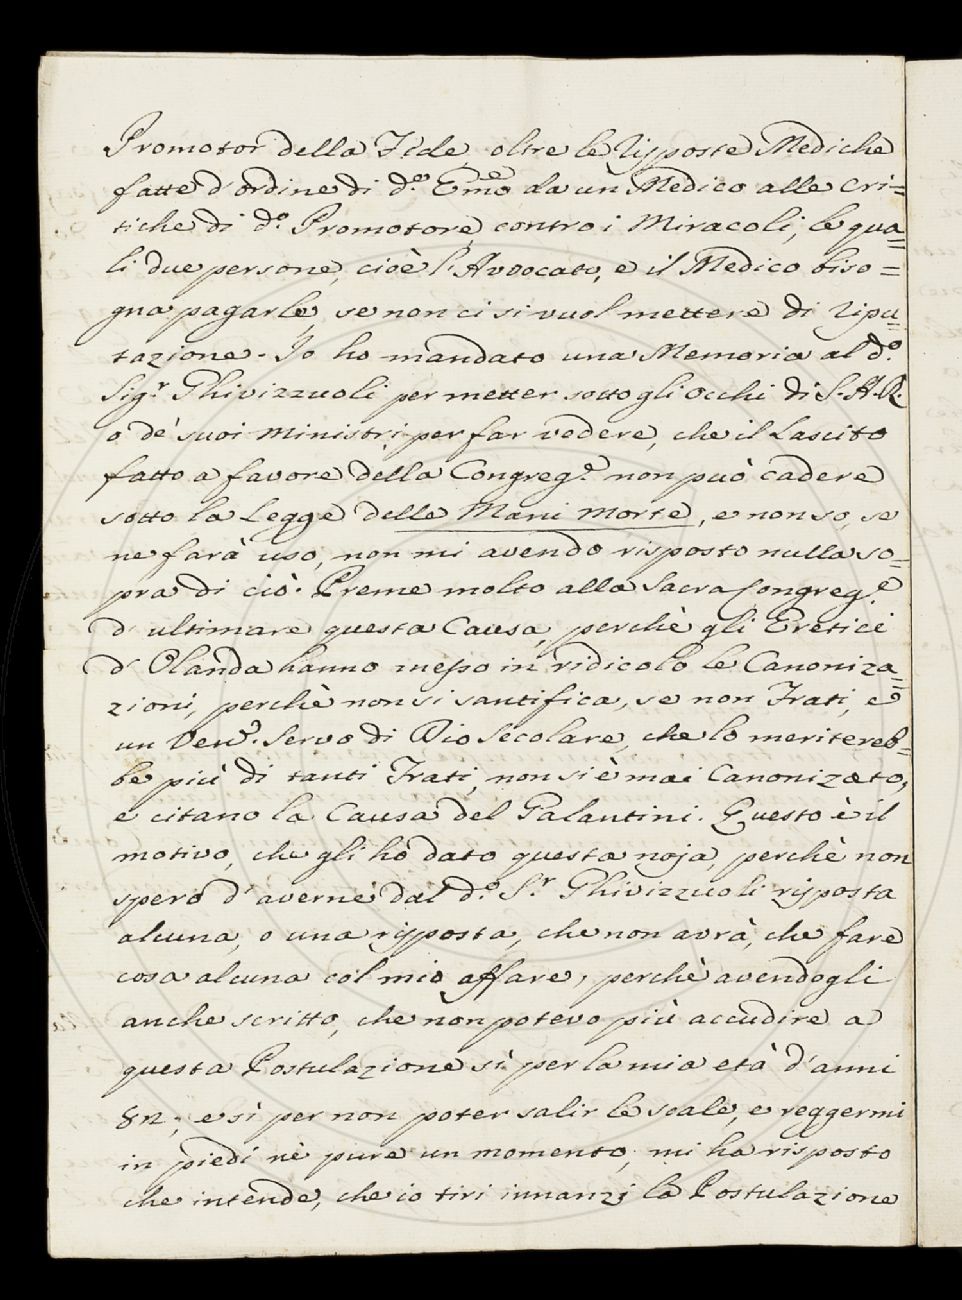 Promotor della Fede, oltre le Risposte Mediche
fatte d'ordine di d.º Em̃o da un Medico alle cri=
tiche di d.º Promotore, contro i Miracoli, le qua=
li due persone, cioè l'Avvocato, e il Medico biso=
gna pagarle, se non ci si vuol mettere di ripu=
tazione. Io ho mandato una Memoria al d.º
Sig.r Ghivizzuoli per metter sotto gli occhi di S. A. R.
o de' suoi Ministri per far vedere, che il Lascito
fatto a favore della Congreg.e non può cadere
sotto la Legge delle Mani Morte, e non so, se
ne farà uso, non mi avendo risposto nulla so=
pra di ciò. Preme molto alla Sacra Congreg.e
d'ultimare questa Causa, perchè gli Eretici
d'Olanda hanno messo in ridicolo le Canoniza=
zioni, perchè non si santifica, se non Frati, e
un Ven.e Servo di Dio Secolare, che lo meritereb=
be più di tanti Frati, non si è mai Canonizato,
e citano la Causa del Galantini. Questo è il
motivo, che gli ho dato questa noja, perchè non
spero d'averne dal d.º S.r Ghivizzuoli risposta
alcuna, o una risposta, che non avrà, che fare
cosa alcuna col mio affare, perchè avendogli
anche scritto, che non potevo più accudire a
questa Postulazione sì per la mia età d'anni
82, e sì per non poter salir le scale, e reggermi
in piedi nè pure un momento, mi ha risposto
che intende, che io tiri innanzi la Postulazione